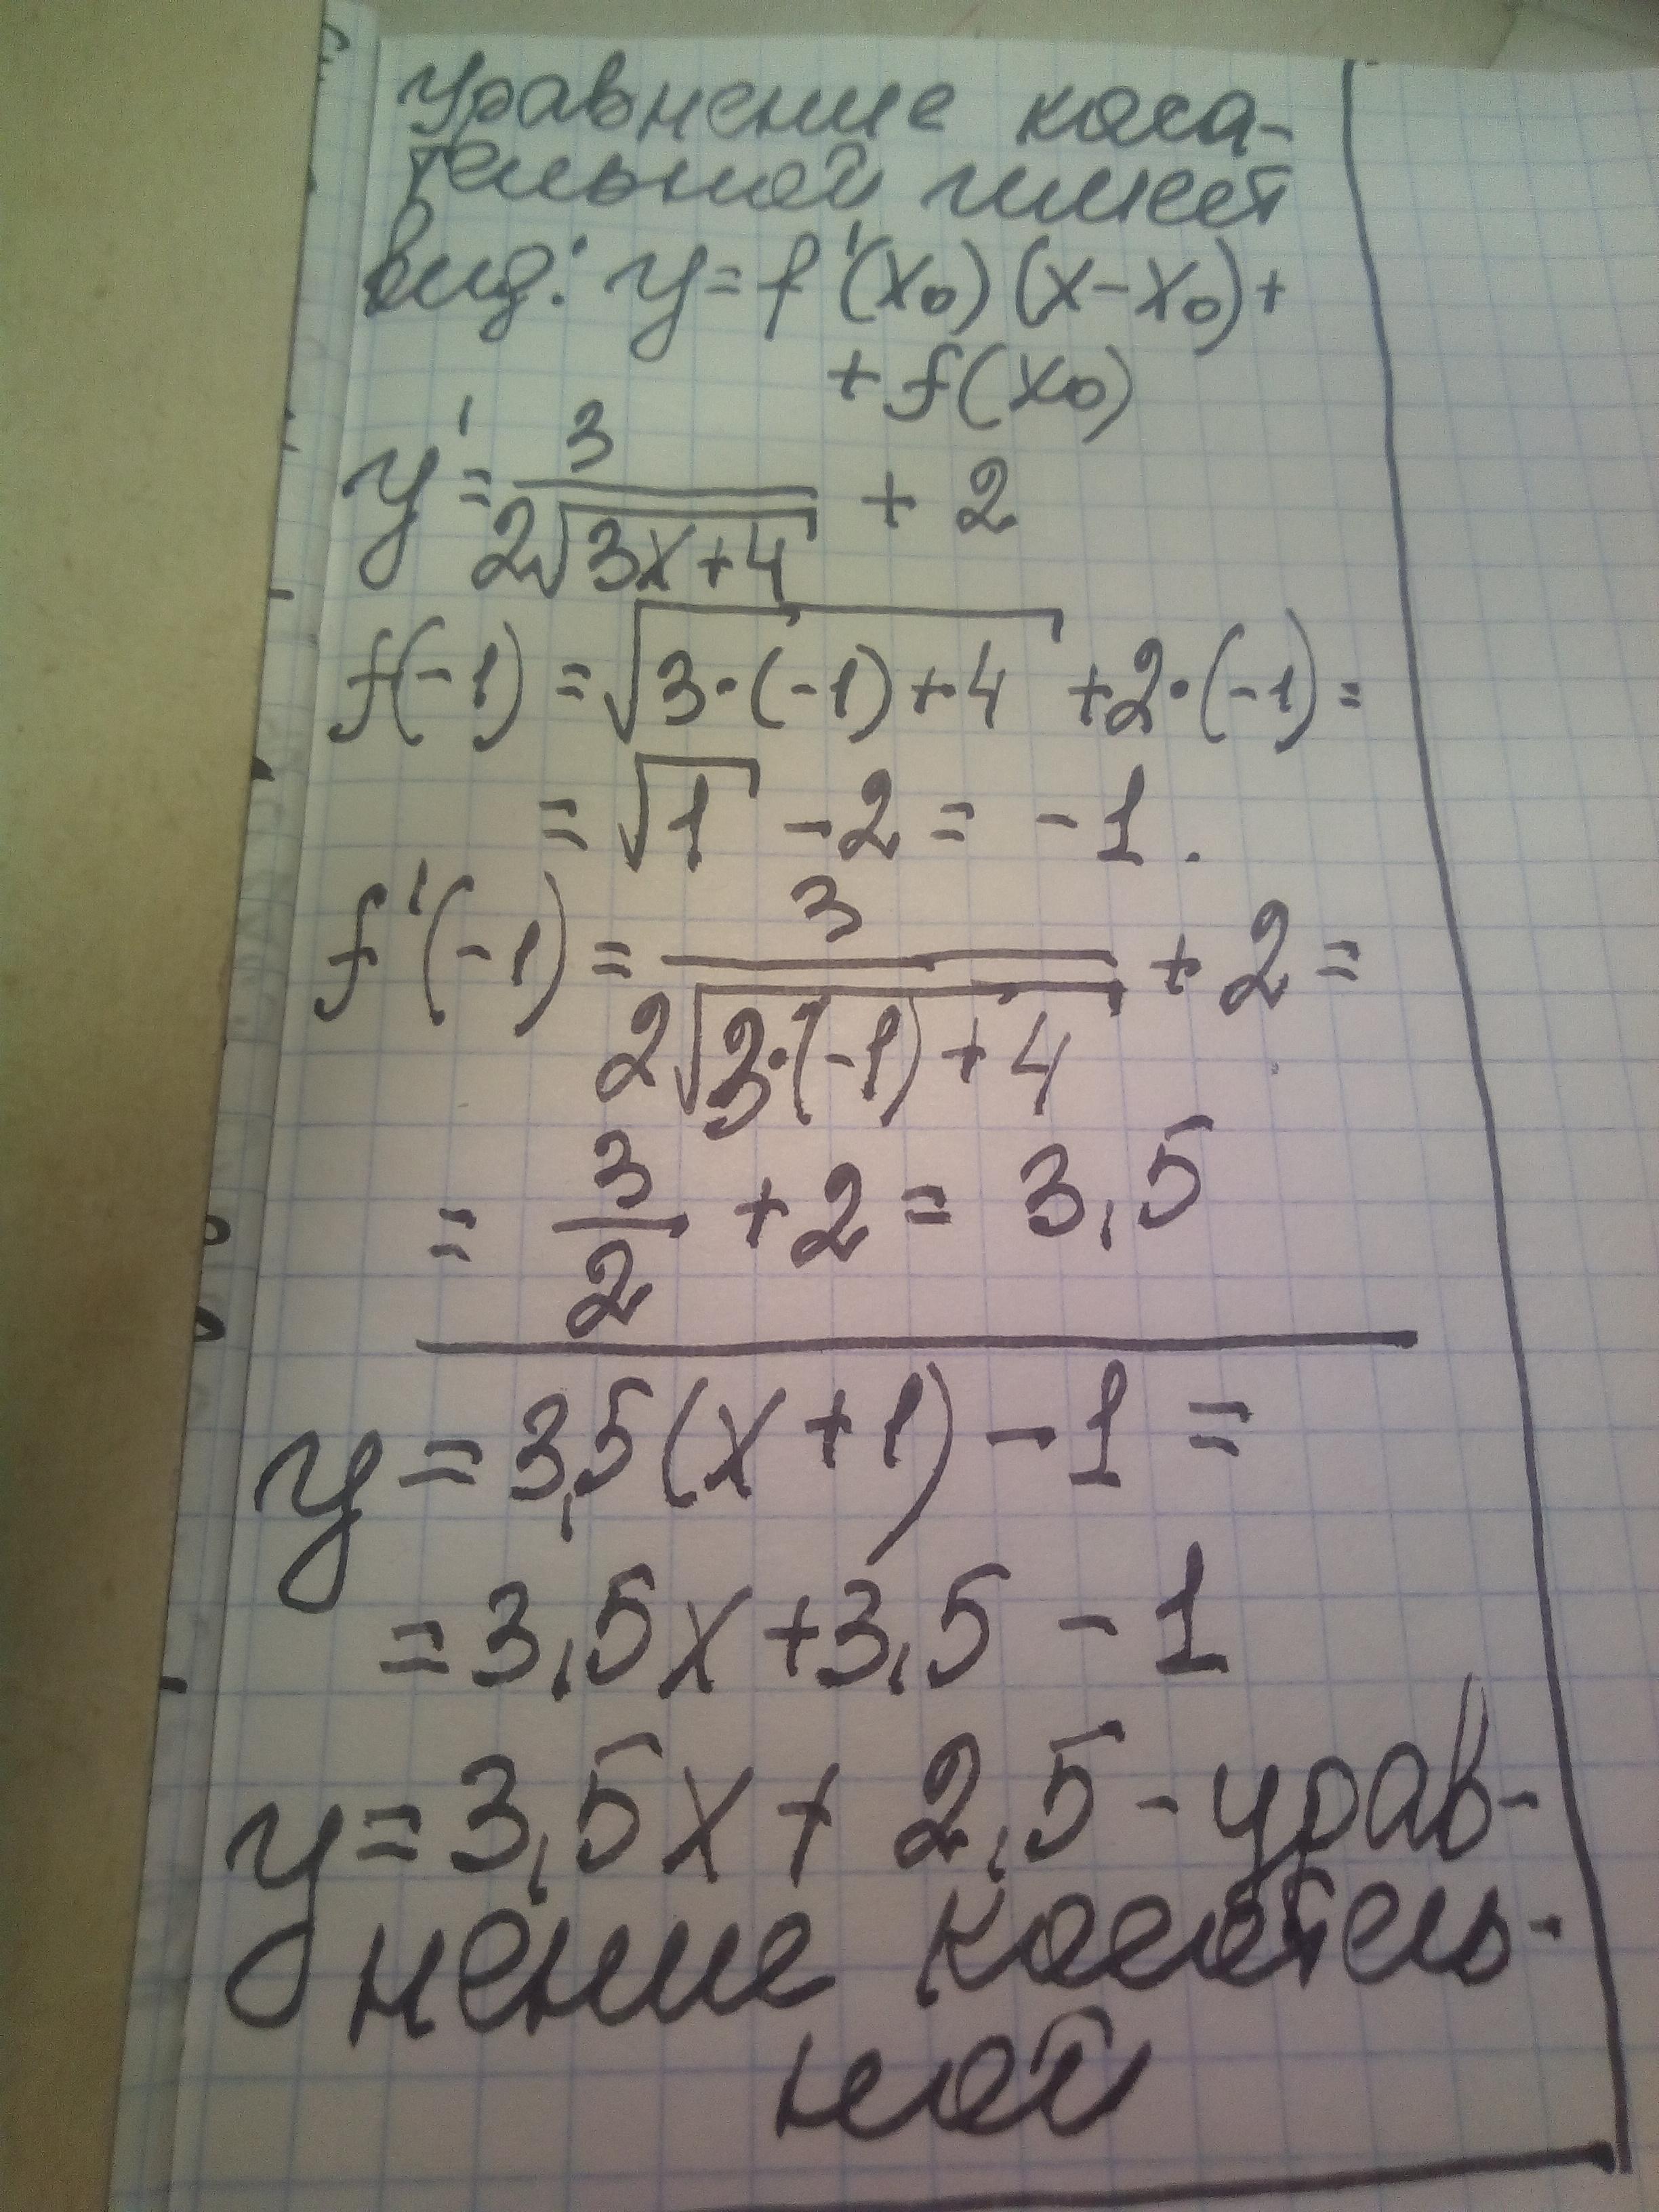 Уравнение каса-
тельной имеет
вид: y = f'(x₀)(x-x₀)+
+ f(x₀)
y' = 3/(2√(3x+4)) + 2
f(-1) = √(3·(-1)+4) +2·(-1) =
= √1 - 2 = -1.
f'(-1) = 3/(2√(3·(-1)+4)) + 2 =
= 3/2 + 2 = 3,5
y = 3,5(x+1) - 1 =
= 3,5x + 3,5 - 1
y = 3,5x + 2,5 - урав-
нение касатель-
ной